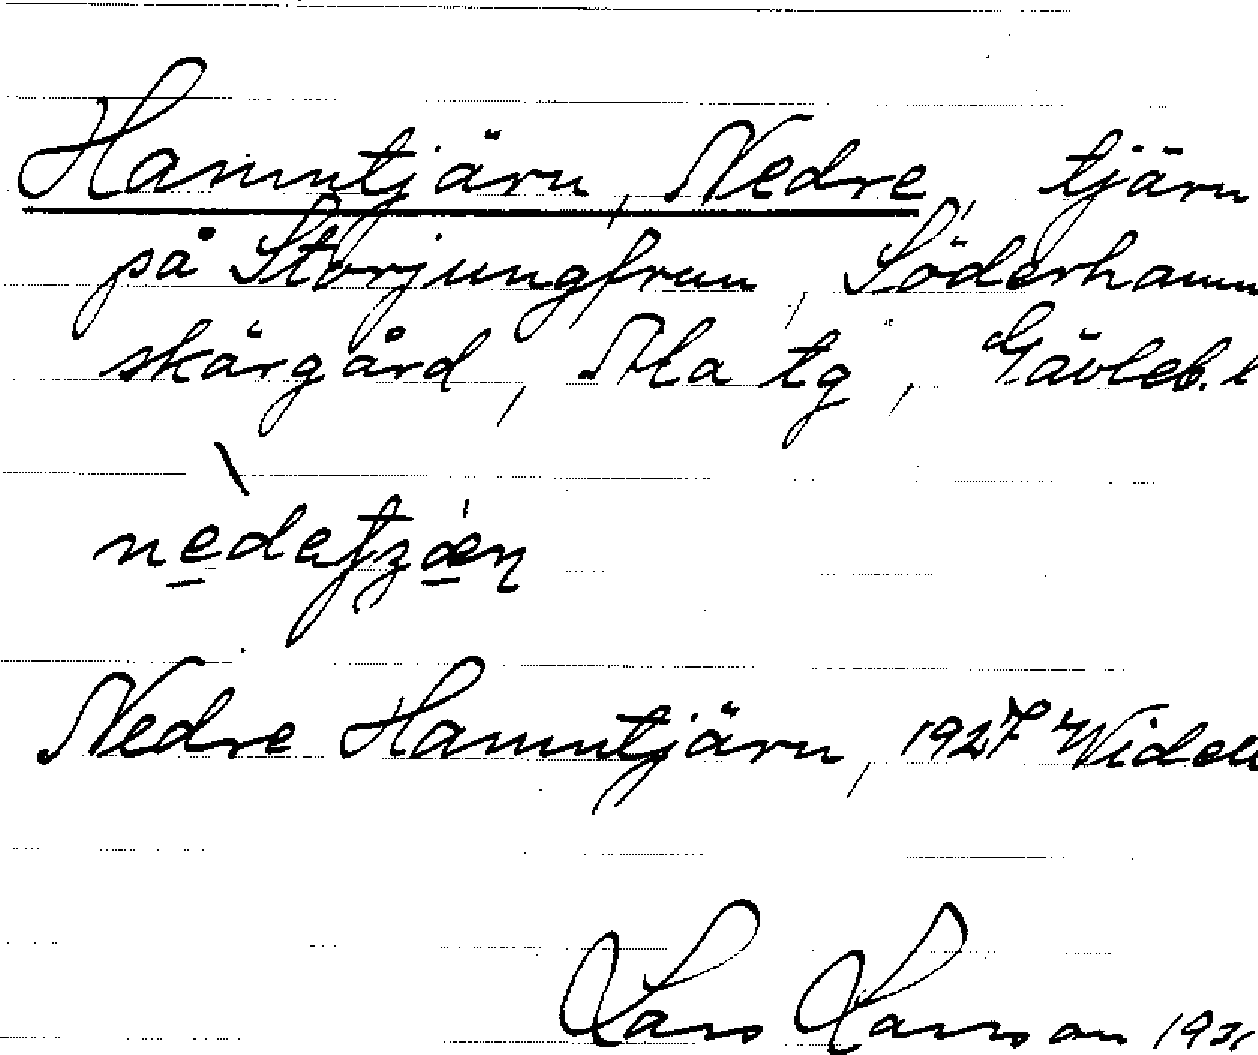 Hamntjärn, Nedre, tjärn
på Storjungfrun, Söderhamn
skärgård, Ala tg, Gävleb. l
Nedre Hamntjärn, 1927 Widell
Lars Larsson 193